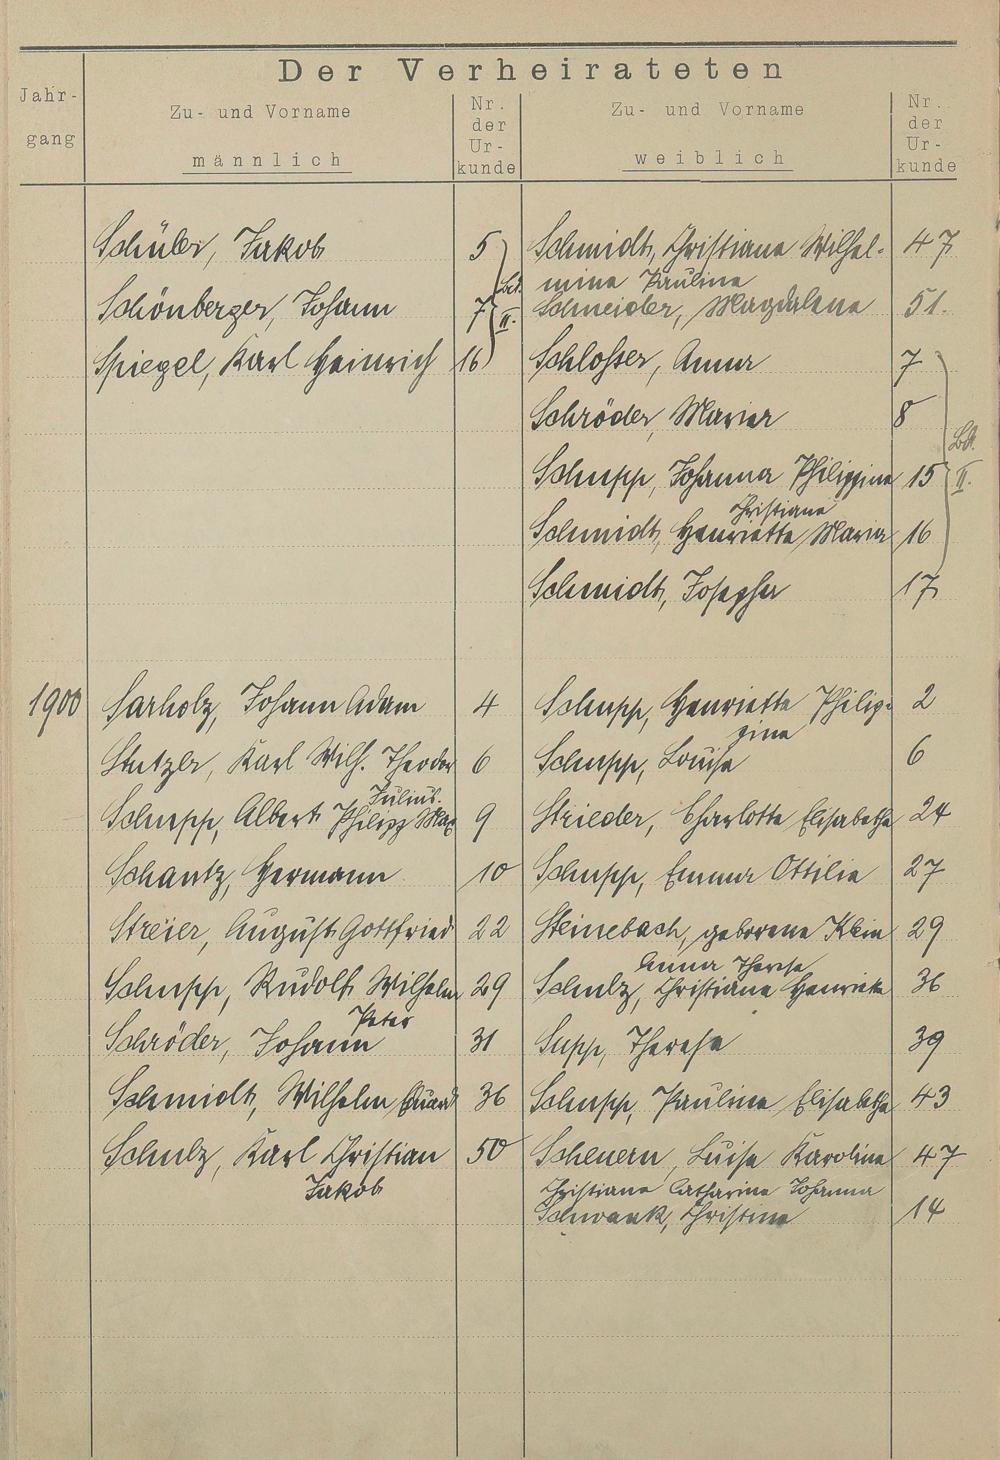 Der Verheirateten
Jahr-
gang
Zu- und Vorname
männlich
Nr.
der
Ur-
kunde
Zu- und Vorname
weiblich
Nr.
der
Ur-
kunde
Schüler, Jakob 5 Schmidt, Christiane Wilhel- 47
mine Pauline
Schönberger, Johann 7 Bd. II. Schneider, Magdalena 51.
Spiegel, Karl Heinrich 16 Schlosser, Anna 7
Schröder, Maria 8
Bd. II.
Schupp, Johanna Philippine 15
Christiane
Schmidt, Henriette Maria 16
Schmidt, Josepha 17
1900 Sarholz, Johann Adam 4 Schupp, Henriette Philip- 2
pine
Stutzer, Karl Wilh. Theodor 6 Schupp, Louise 6
Julius.
Schupp, Albert Philipp Max 9 Strieder, Charlotte Elisabetha 24
Schantz, Hermann 10 Schupp, Emma Ottilie 27
Streier, August Gottfried 22 Steinebach, geborene Klein 29
Anna Therese
Schupp, Rudolf Wilhelm 29 Schulz, Christiane Henriette 36
Peter
Schröder, Johann 31 Supp, Therese 39
Schmidt, Wilhelm 36 Schupp, Pauline Elisabetha 43
Schulz, Karl Christian 50 Scheuern, Luise Karoline 47
Jakob Christiane Catharine Johanna
Schwank, Christine 14